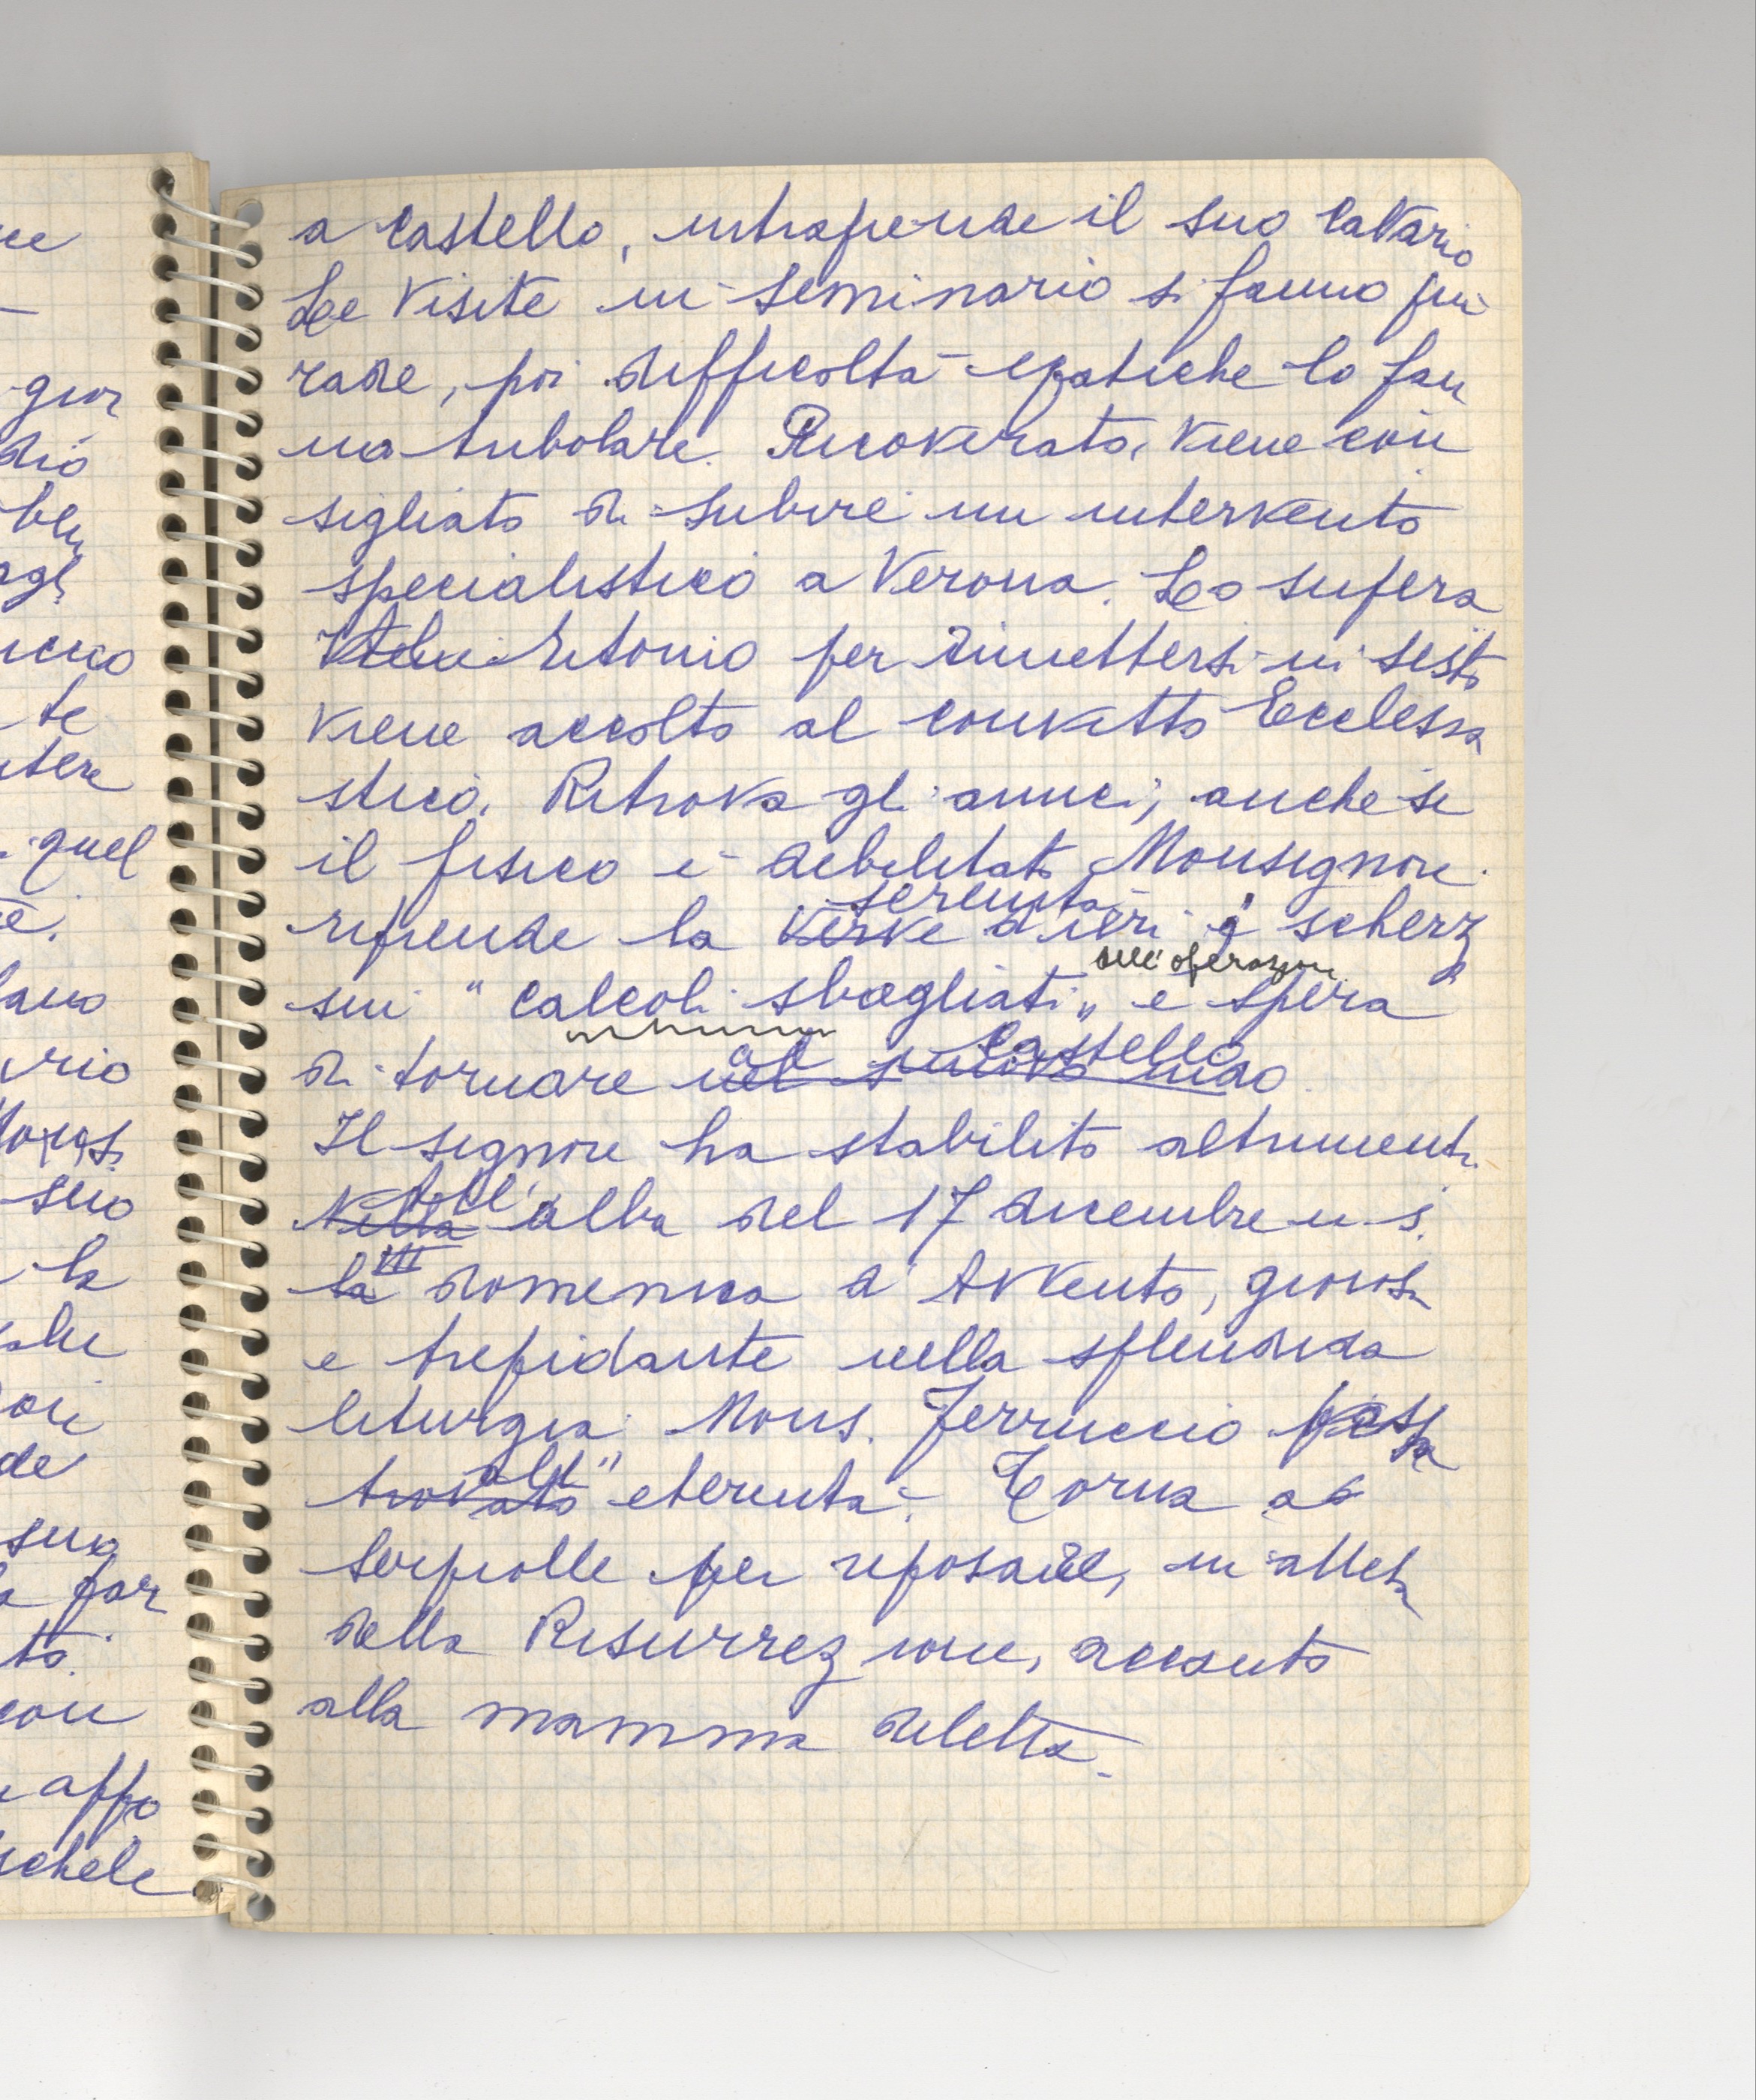 ce
gior
dio
ble
icuo
te
quel
è.
rio
suo
la
ori
de
suo
par
to.
con
affo
a Castello, intraprende il suo Calvario
Le Visite in seminario si fanno più
rade, poi difficoltà epatiche lo fan
no tribolare. Ricoverato, viene con
sigliato di subire un intervento
specialistico a Verona. Lo supera
Ritorno per rimettersi in sesto
viene accolto al convitto Ecclesia
stico. Ritrova gli amici, anche se
il fisico è debilitato Monsignore
serenità
riprende la verve d'ieri e scherza
sull'operazione
sui "calcoli sbagliati" e spera
al Castello
di tornare nel nuovo nido.
Il signore ha stabilito altrimenti.
All'
Nella alba del 17 dicembre u.s.
III
la domenica d'Avvento, gioiosa
e trepidante nella splendida
liturgia Mons. Ferruccio passa
all'
trovato eternità. Torna a
Serpiolle per riposare, in attesa
della Risurrezione, accanto
alla mamma diletta.